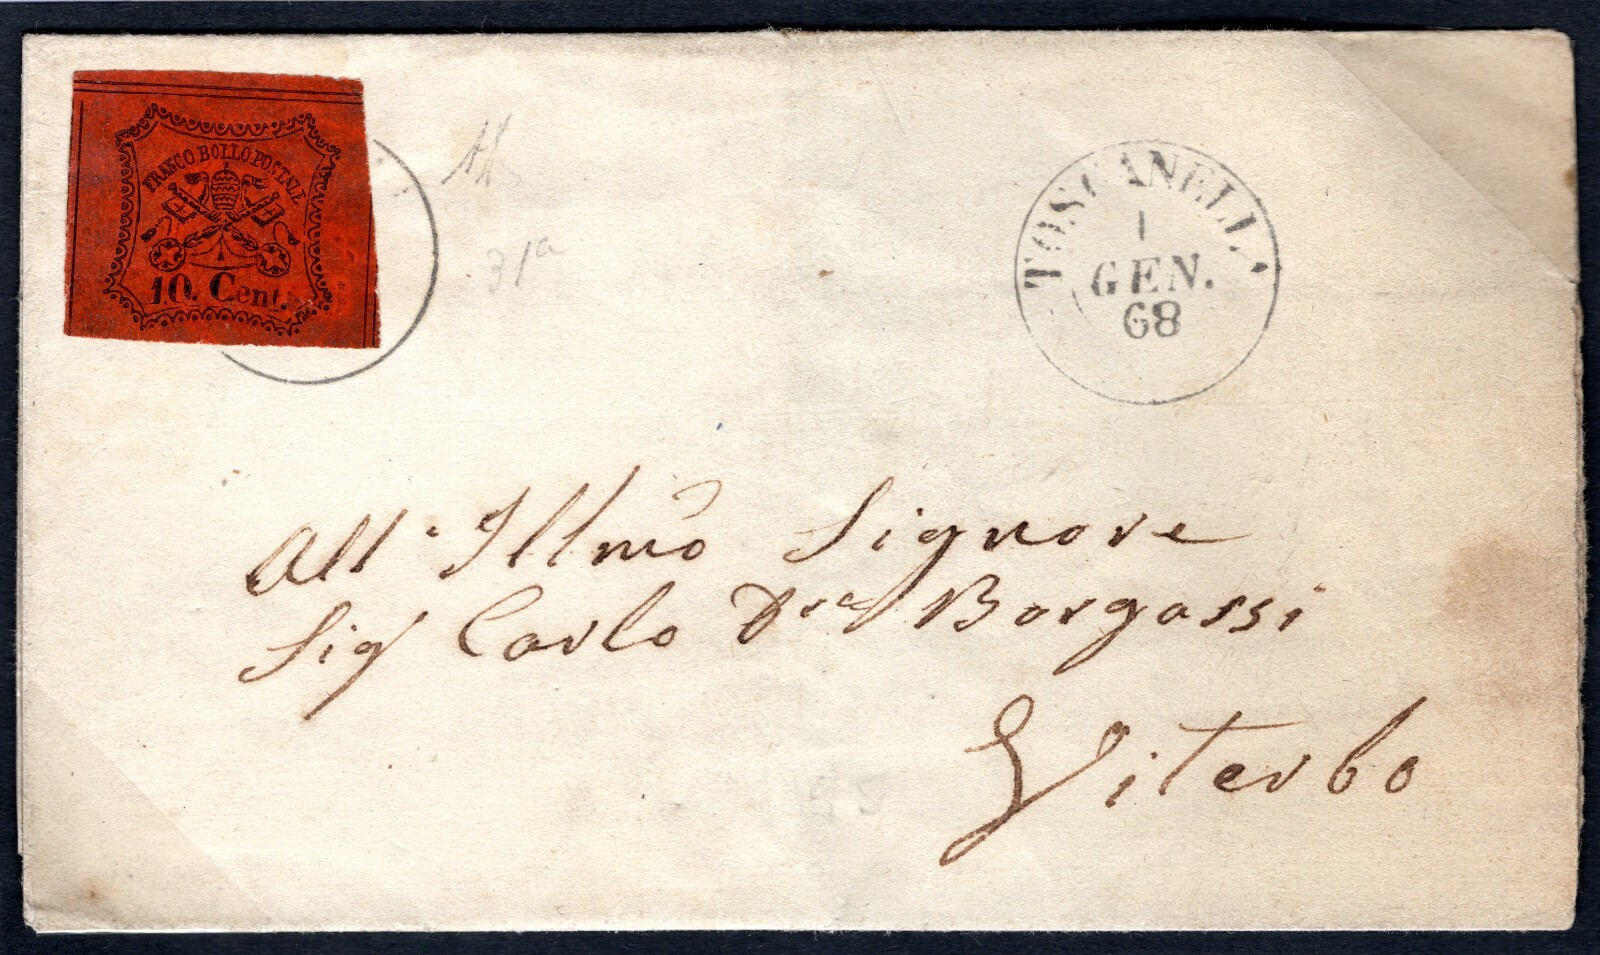 FRANCO BOLLO POSTALE
10. Cent.
31a
TOSCANELLA
1
GEN.
68
All' Illmo Signore
Sig Carlo Dre Borgassi
Viterbo